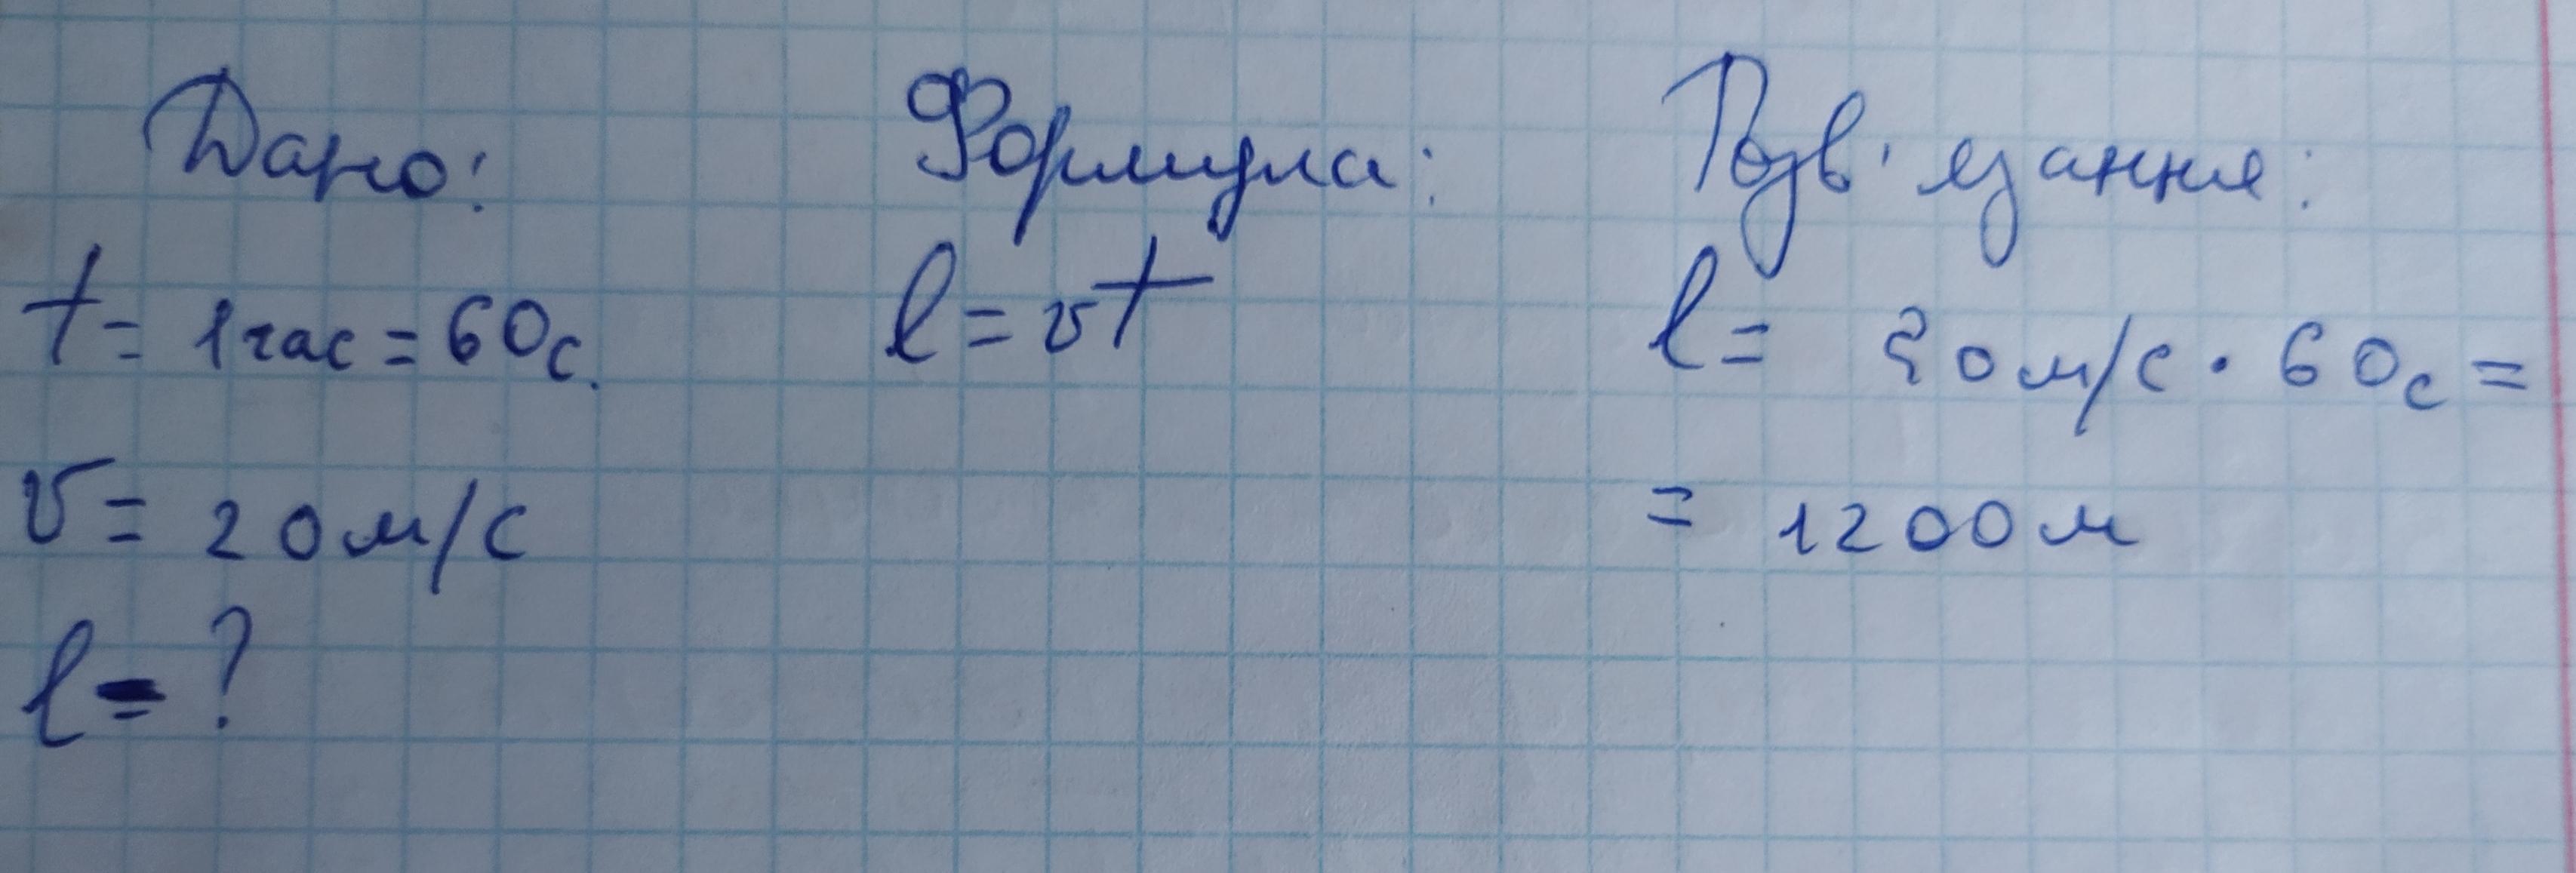 Дано:
t = 1 час = 60с.
v = 20 м/с
l = ?
Формула:
l = vt
Розв'язання:
l = 20 м/с · 60с =
= 1200 м